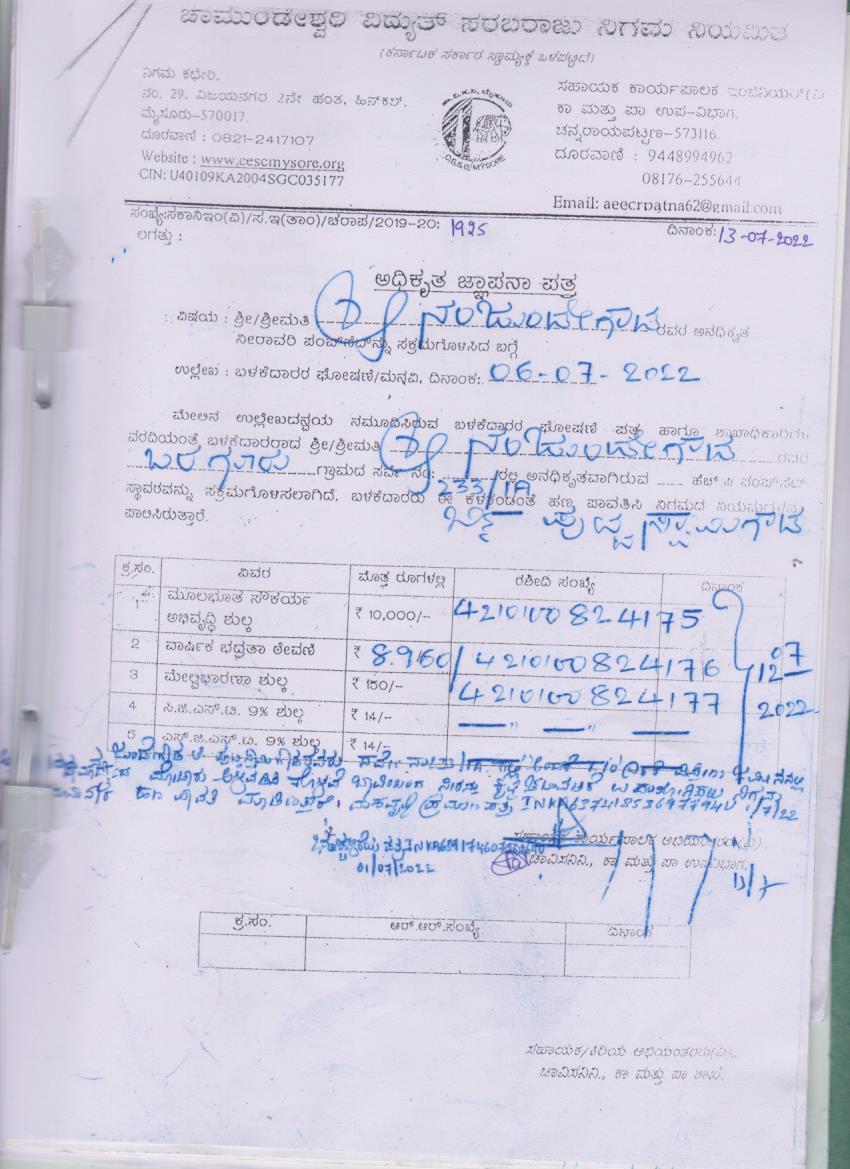 ಚಾಮುಂಡೇಶ್ವರಿ ವಿದ್ಯುತ್ ಸರಬರಾಜು ನಿಗಮ ನಿಯಮಿತ
(ಕರ್ನಾಟಕ ಸರ್ಕಾರ ಸ್ವಾಮ್ಯಕ್ಕೆ ಒಳಪಟ್ಟಿದೆ)
ನಿಗಮ ಕಛೇರಿ.
ನಂ. 29, ವಿಜಯನಗರ 2ನೇ ಹಂತ, ಹಿನ್‌ಕಲ್.
ಮೈಸೂರು-570017.
ದೂರವಾಣಿ : 0821-2417107
Website : www.cescmysore.org
CIN: U40109KA2004SGC035177
C.E.S.C/MYSORE
ಸಹಾಯಕ ಕಾರ್ಯಪಾಲಕ ಇಂಜಿನಿಯರ್(ವಿ
ಕಾ ಮತ್ತು ಪಾ ಉಪ-ವಿಭಾಗ,
ಚನ್ನರಾಯಪಟ್ಟಣ-573116.
ದೂರವಾಣಿ : 9448994962
08176-255644
Email: aeecrpatna62@gmail.com
ಸಂಖ್ಯೆ:ಸಕಾನಿಇಂ(ವಿ)/ಸ.ಇ(ತಾಂ)/ಚರಾಪ/2019-20: 1925
ದಿನಾಂಕ: 13-07-2022
ಲಗತ್ತು :
ಅಧಿಕೃತ ಜ್ಞಾಪನಾ ಪತ್ರ
ವಿಷಯ : ಶ್ರೀ/ಶ್ರೀಮತಿ ಶ್ರೀ ನಂಜುಂಡೇಗೌಡ ರವರ ಅನಧಿಕೃತ
ನೀರಾವರಿ ಪಂಪ್‌ಸೆಟ್‌ನ್ನು ಸಕ್ರಮಗೊಳಿಸಿದ ಬಗ್ಗೆ
ಉಲ್ಲೇಖ : ಬಳಕೆದಾರರ ಘೋಷಣೆ/ಮನವಿ, ದಿನಾಂಕ: 06-07-2022
ಮೇಲಿನ ಉಲ್ಲೇಖದನ್ವಯ ನಮೂದಿಸಿರುವ ಬಳಕೆದಾರರ ಘೋಷಣೆ ಪತ್ರ ಹಾಗೂ ಶಾಖಾಧಿಕಾರಿಗಳ
ವರದಿಯಂತೆ ಬಳಕೆದಾರರಾದ ಶ್ರೀ/ಶ್ರೀಮತಿ ಶ್ರೀ ನಂಜುಂಡೇಗೌಡ ರವರ
ಬರಗೂರು ಗ್ರಾಮದ ಸರ್ವೆ ನಂ: 233/1A ರಲ್ಲಿ ಅನಧಿಕೃತವಾಗಿರುವ ___ ಹೆಚ್.ಪಿ ಪಂಪ್‌ಸೆಟ್
ಸ್ಥಾವರವನ್ನು ಸಕ್ರಮಗೊಳಿಸಲಾಗಿದೆ. ಬಳಕೆದಾರರು ಈ ಕೆಳಕಂಡಂತೆ ಹಣ ಪಾವತಿಸಿ ನಿಗಮದ ನಿಯಮಗಳನ್ನು
ಪಾಲಿಸಿರುತ್ತಾರೆ.
ಬಿನ್ ಪುಟ್ಟಸ್ವಾಮಿಗೌಡ
ಕ್ರ.ಸಂ. ವಿವರ ಮೊತ್ತ ರೂಗಳಲ್ಲಿ ರಶೀದಿ ಸಂಖ್ಯೆ ದಿನಾಂಕ
1 ಮೂಲಭೂತ ಸೌಕರ್ಯ ಅಭಿವೃದ್ಧಿ ಶುಲ್ಕ ₹ 10,000/- 4210100824175
2 ವಾರ್ಷಿಕ ಭದ್ರತಾ ಠೇವಣಿ ₹ 8.960/ 4210100824176 12/07
3 ಮೇಲ್ವಿಚಾರಣಾ ಶುಲ್ಕ ₹ 150/- 4210100824177 2022
4 ಸಿ.ಜಿ.ಎಸ್.ಟಿ. 9% ಶುಲ್ಕ ₹ 14/- — " — —
5 ಎಸ್.ಜಿ.ಎಸ್.ಟಿ. 9% ಶುಲ್ಕ ₹ 14/-
01/07/2022
ಸಹಾಯಕ ಕಾರ್ಯಪಾಲಕ ಅಭಿಯಂತರರು(ವಿ)
ಚಾವಿಸನಿನಿ., ಕಾ ಮತ್ತು ಪಾ ಉಪವಿಭಾಗ,
13/7
ಕ್ರ.ಸಂ. ಆರ್.ಆರ್.ಸಂಖ್ಯೆ ದಿನಾಂಕ
ಸಹಾಯಕ/ಕಿರಿಯ ಅಭಿಯಂತರರು(ವಿ).
ಚಾವಿಸನಿನಿ., ಕಾ ಮತ್ತು ಪಾ ಶಾಖೆ.